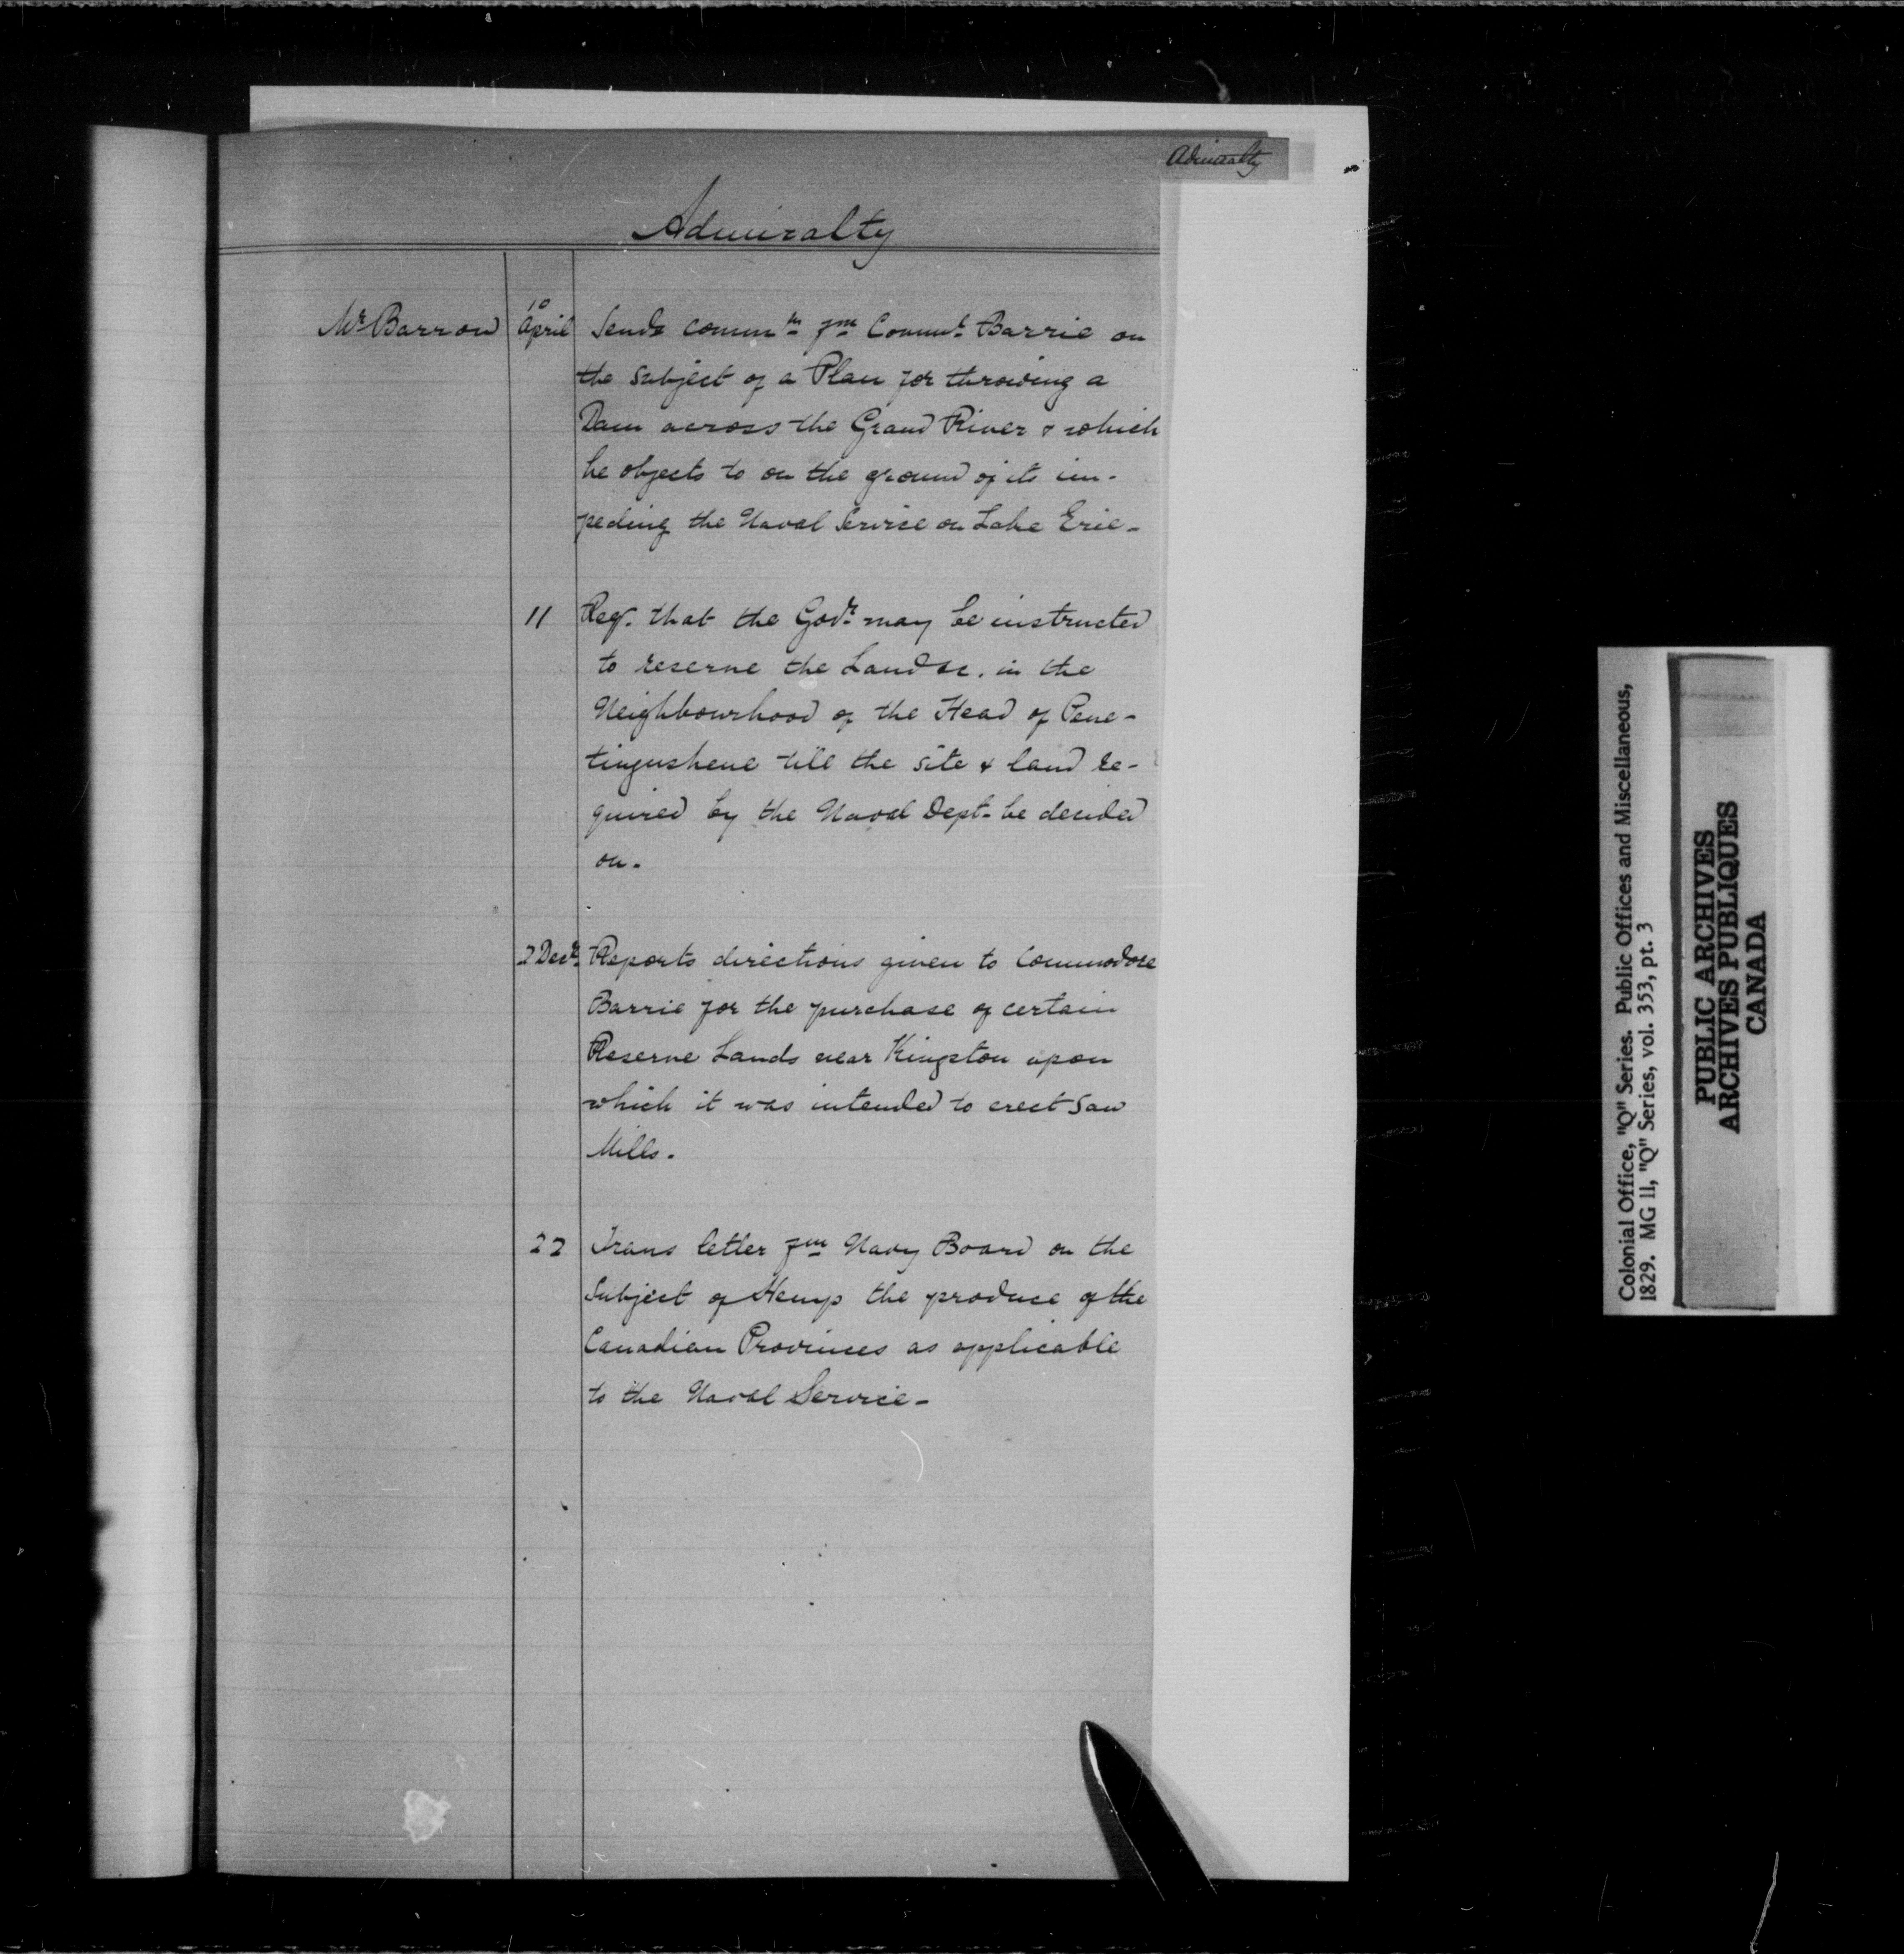 Admiralty
Admiralty
Mr Barrow
10 April
Sends commn fm Commr Barrie on
the subject of a Plan for throwing a
Dam across the Grand River & which
he objects to on the ground of its im-
peding the Naval Service on Lake Erie-
11
Req. that the Govr may be instructed
to reserve the Land &c. in the
Neighbourhood of the Head of Pene-
tingushene till the site & land re-
quired by the Naval Dept. be decided
on.
2 Decr
Reports directions given to Commodore
Barrie for the purchase of certain
Reserve Lands near Kingston upon
which it was intended to erect Saw
Mills.
22
Trans letter fm Navy Board on the
Subject of Hemp the produce of the
Canadian Provinces as applicable
to the Naval Service-
Colonial Office, "Q" Series. Public Offices and Miscellaneous,
1829. MG 11, "Q" Series, vol. 353, pt. 3
PUBLIC ARCHIVES
ARCHIVES PUBLIQUES
CANADA